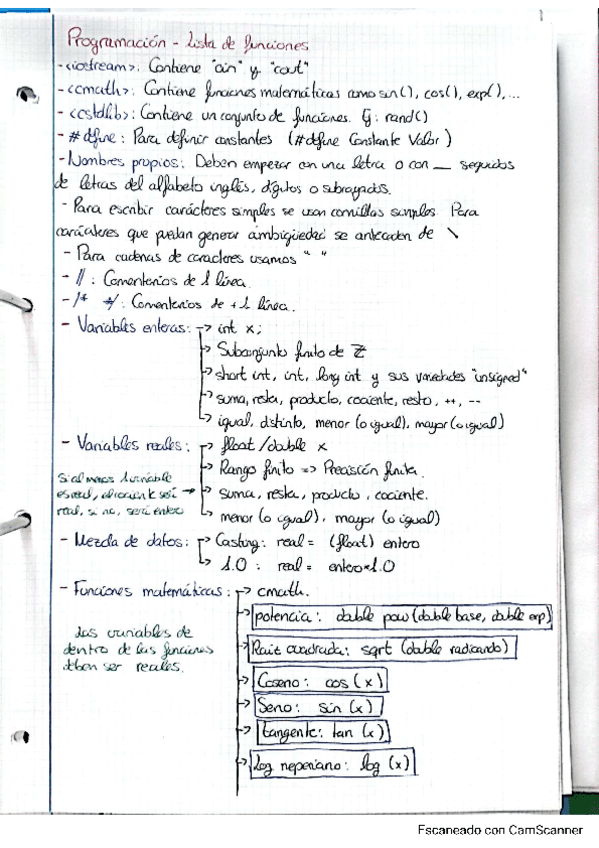 Programación - Lista de funciones
- <iostream>: Contiene "cin" y "cout"
- <cmath>: Contiene funciones matemáticas como sin(), cos(), exp(), ...
- <cstdlib>: Contiene un conjunto de funciones. Ej: rand()
- #define: Para definir constantes (#define Constante Valor)
- Nombres propios: Deben empezar con una letra o con _ seguidos
de letras del alfabeto inglés, dígitos o subrayados.
- Para escribir carácteres simples se usan comillas simples. Para
carácteres que puedan generar ambigüedad se anteceden de \
- Para cadenas de caracteres usamos " "
- // : Comentarios de 1 línea.
- /* */ : Comentarios de +1 línea.
- Variables enteras: -> int x;
-> Subconjunto finito de Z
-> short int, int, long int y sus variedades "unsigned"
-> suma, resta, producto, cociente, resto, ++, --
-> igual, distinto, menor (o igual), mayor (o igual)
- Variables reales: -> float/double x
-> Rango finito => Precisión finita.
Si al menos 1 variable
es real, el cociente será -> suma, resta, producto, cociente.
real, si no, será entero
-> menor (o igual), mayor (o igual)
- Mezcla de datos: -> Casting: real = (float) entero
-> 1.0 : real = entero*1.0
- Funciones matemáticas: -> cmath.
-> potencia: double pow (double base, double exp)
Las variables de
dentro de las funciones
deben ser reales.
-> Raíz cuadrada: sqrt (double radicando)
-> Coseno: cos (x)
-> Seno: sin (x)
-> tangente: tan (x)
-> Log neperiano: log (x)
Escaneado con CamScanner